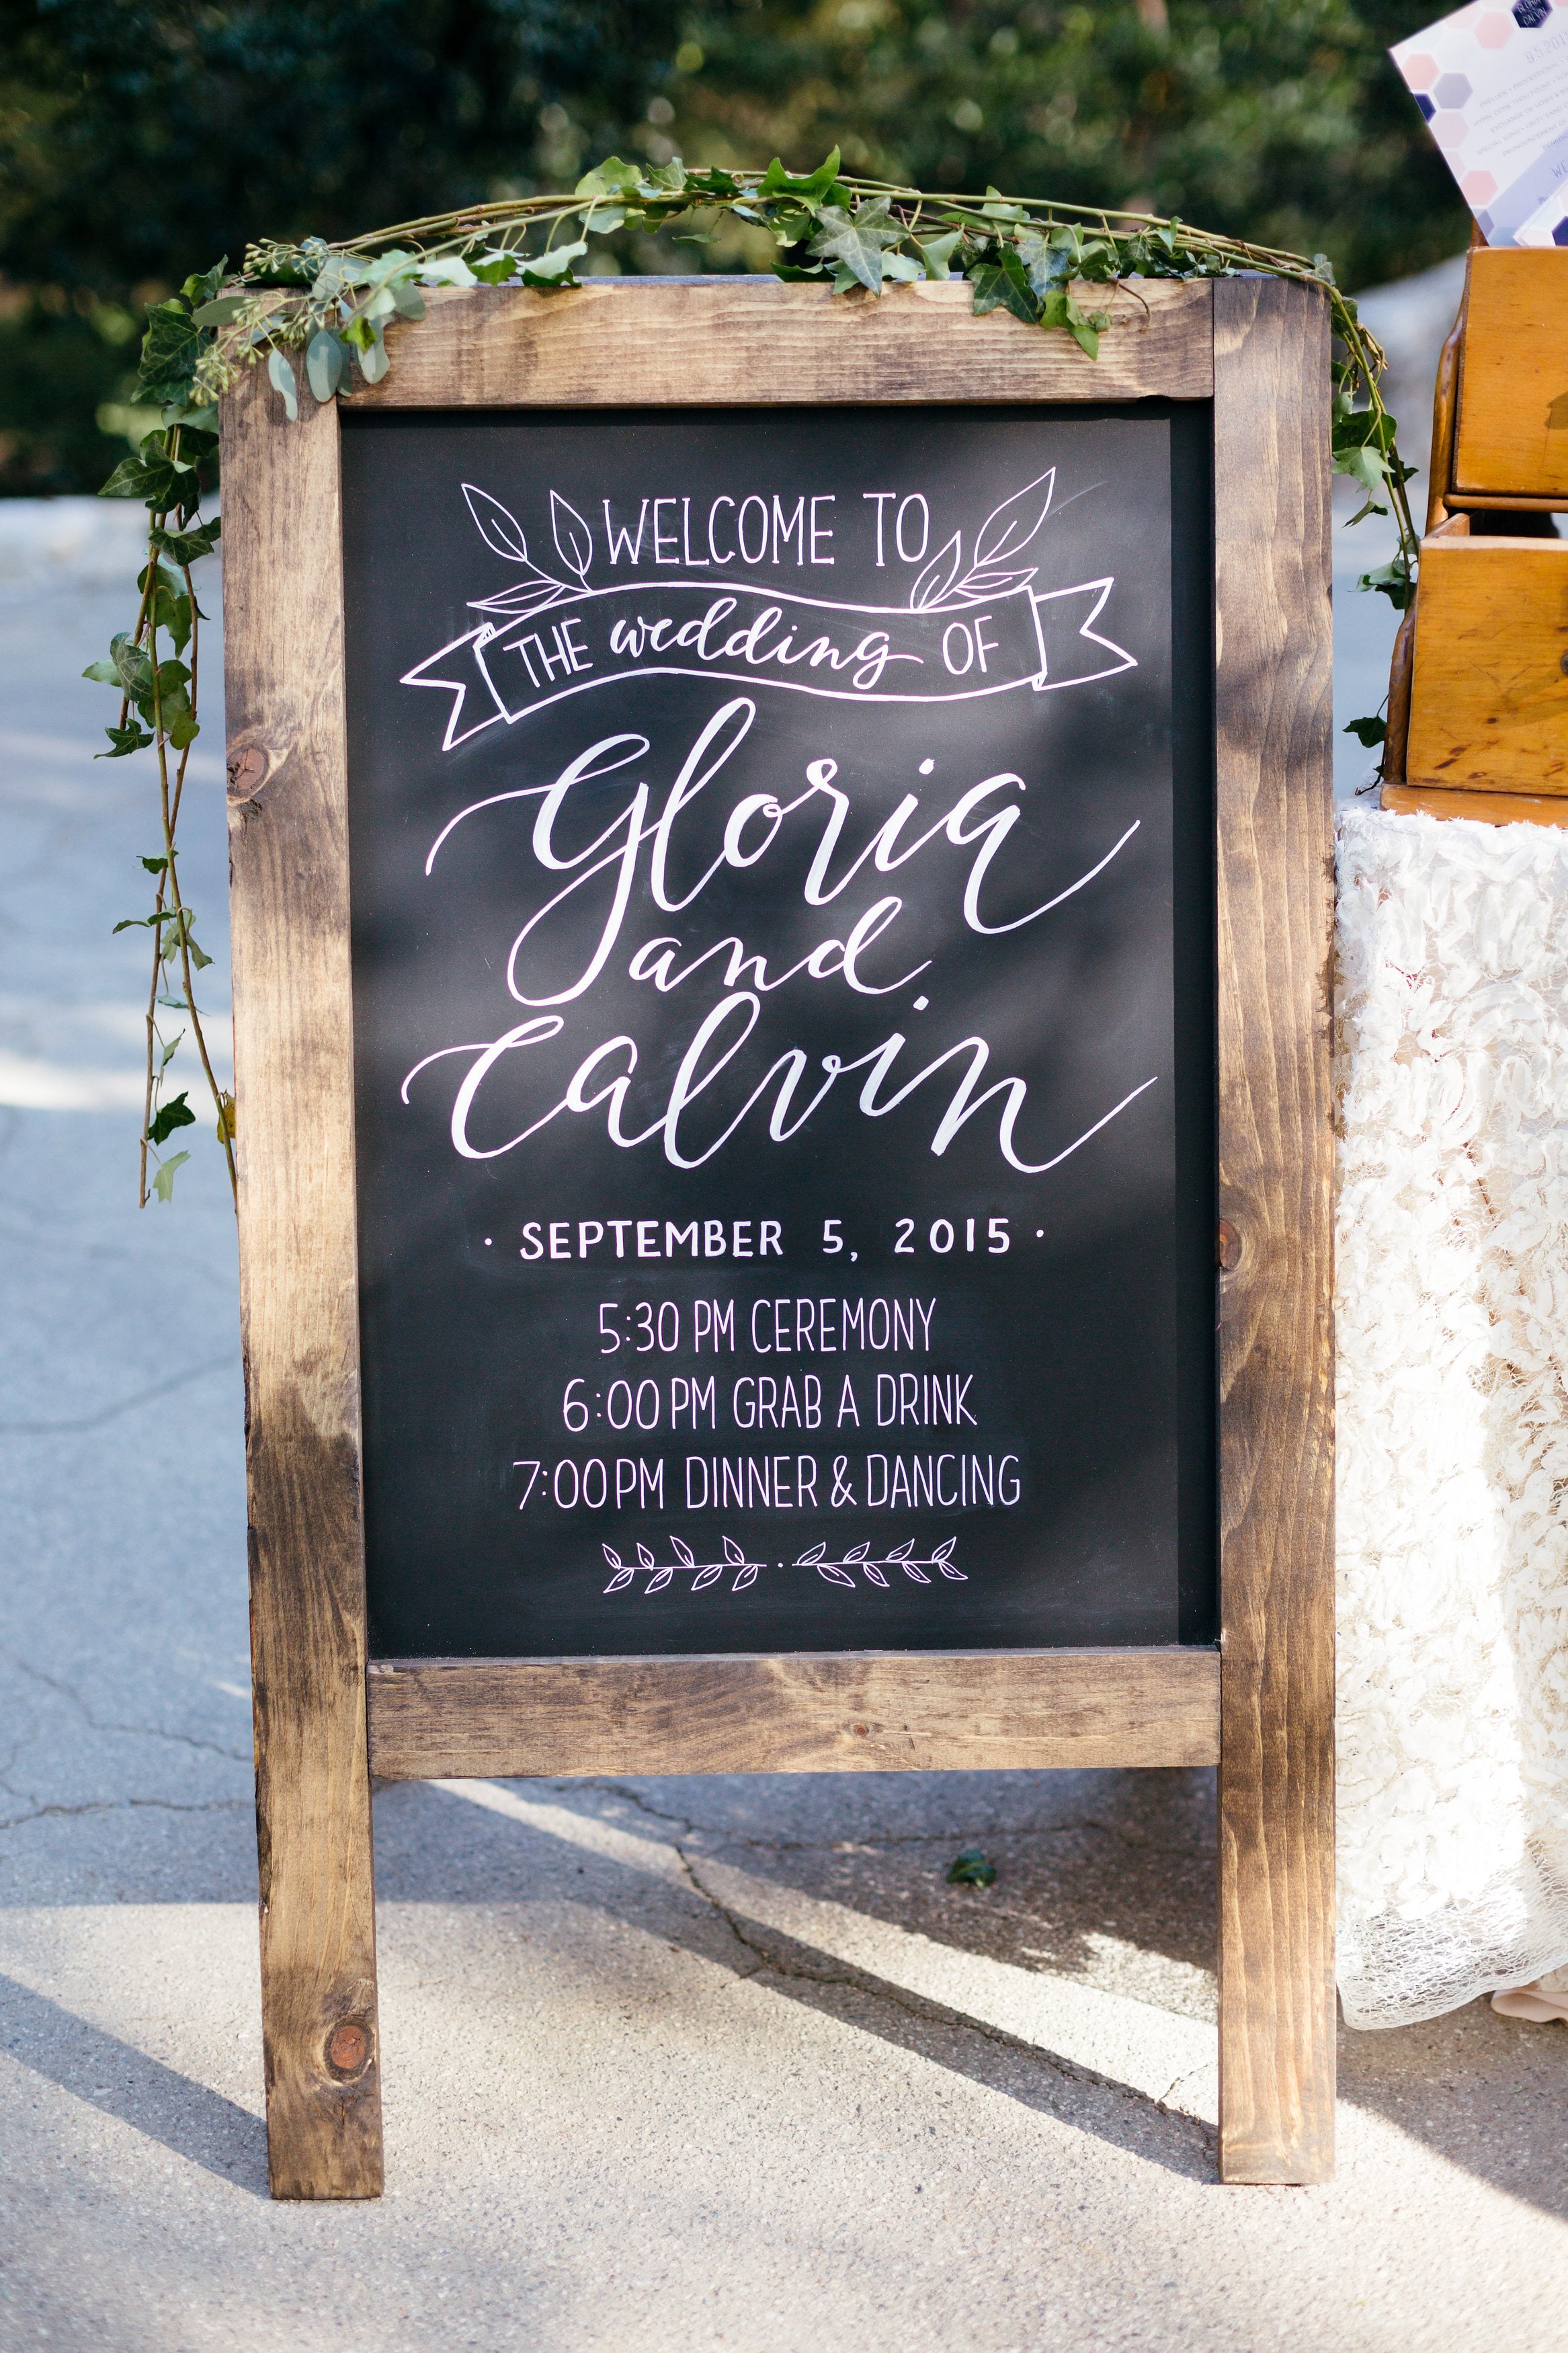 WELCOME TO
THE wedding OF
Gloria
and
Calvin
· SEPTEMBER 5, 2015 ·
5:30 PM CEREMONY
6:00 PM GRAB A DRINK
7:00 PM DINNER & DANCING
GLORIA
CALVIN